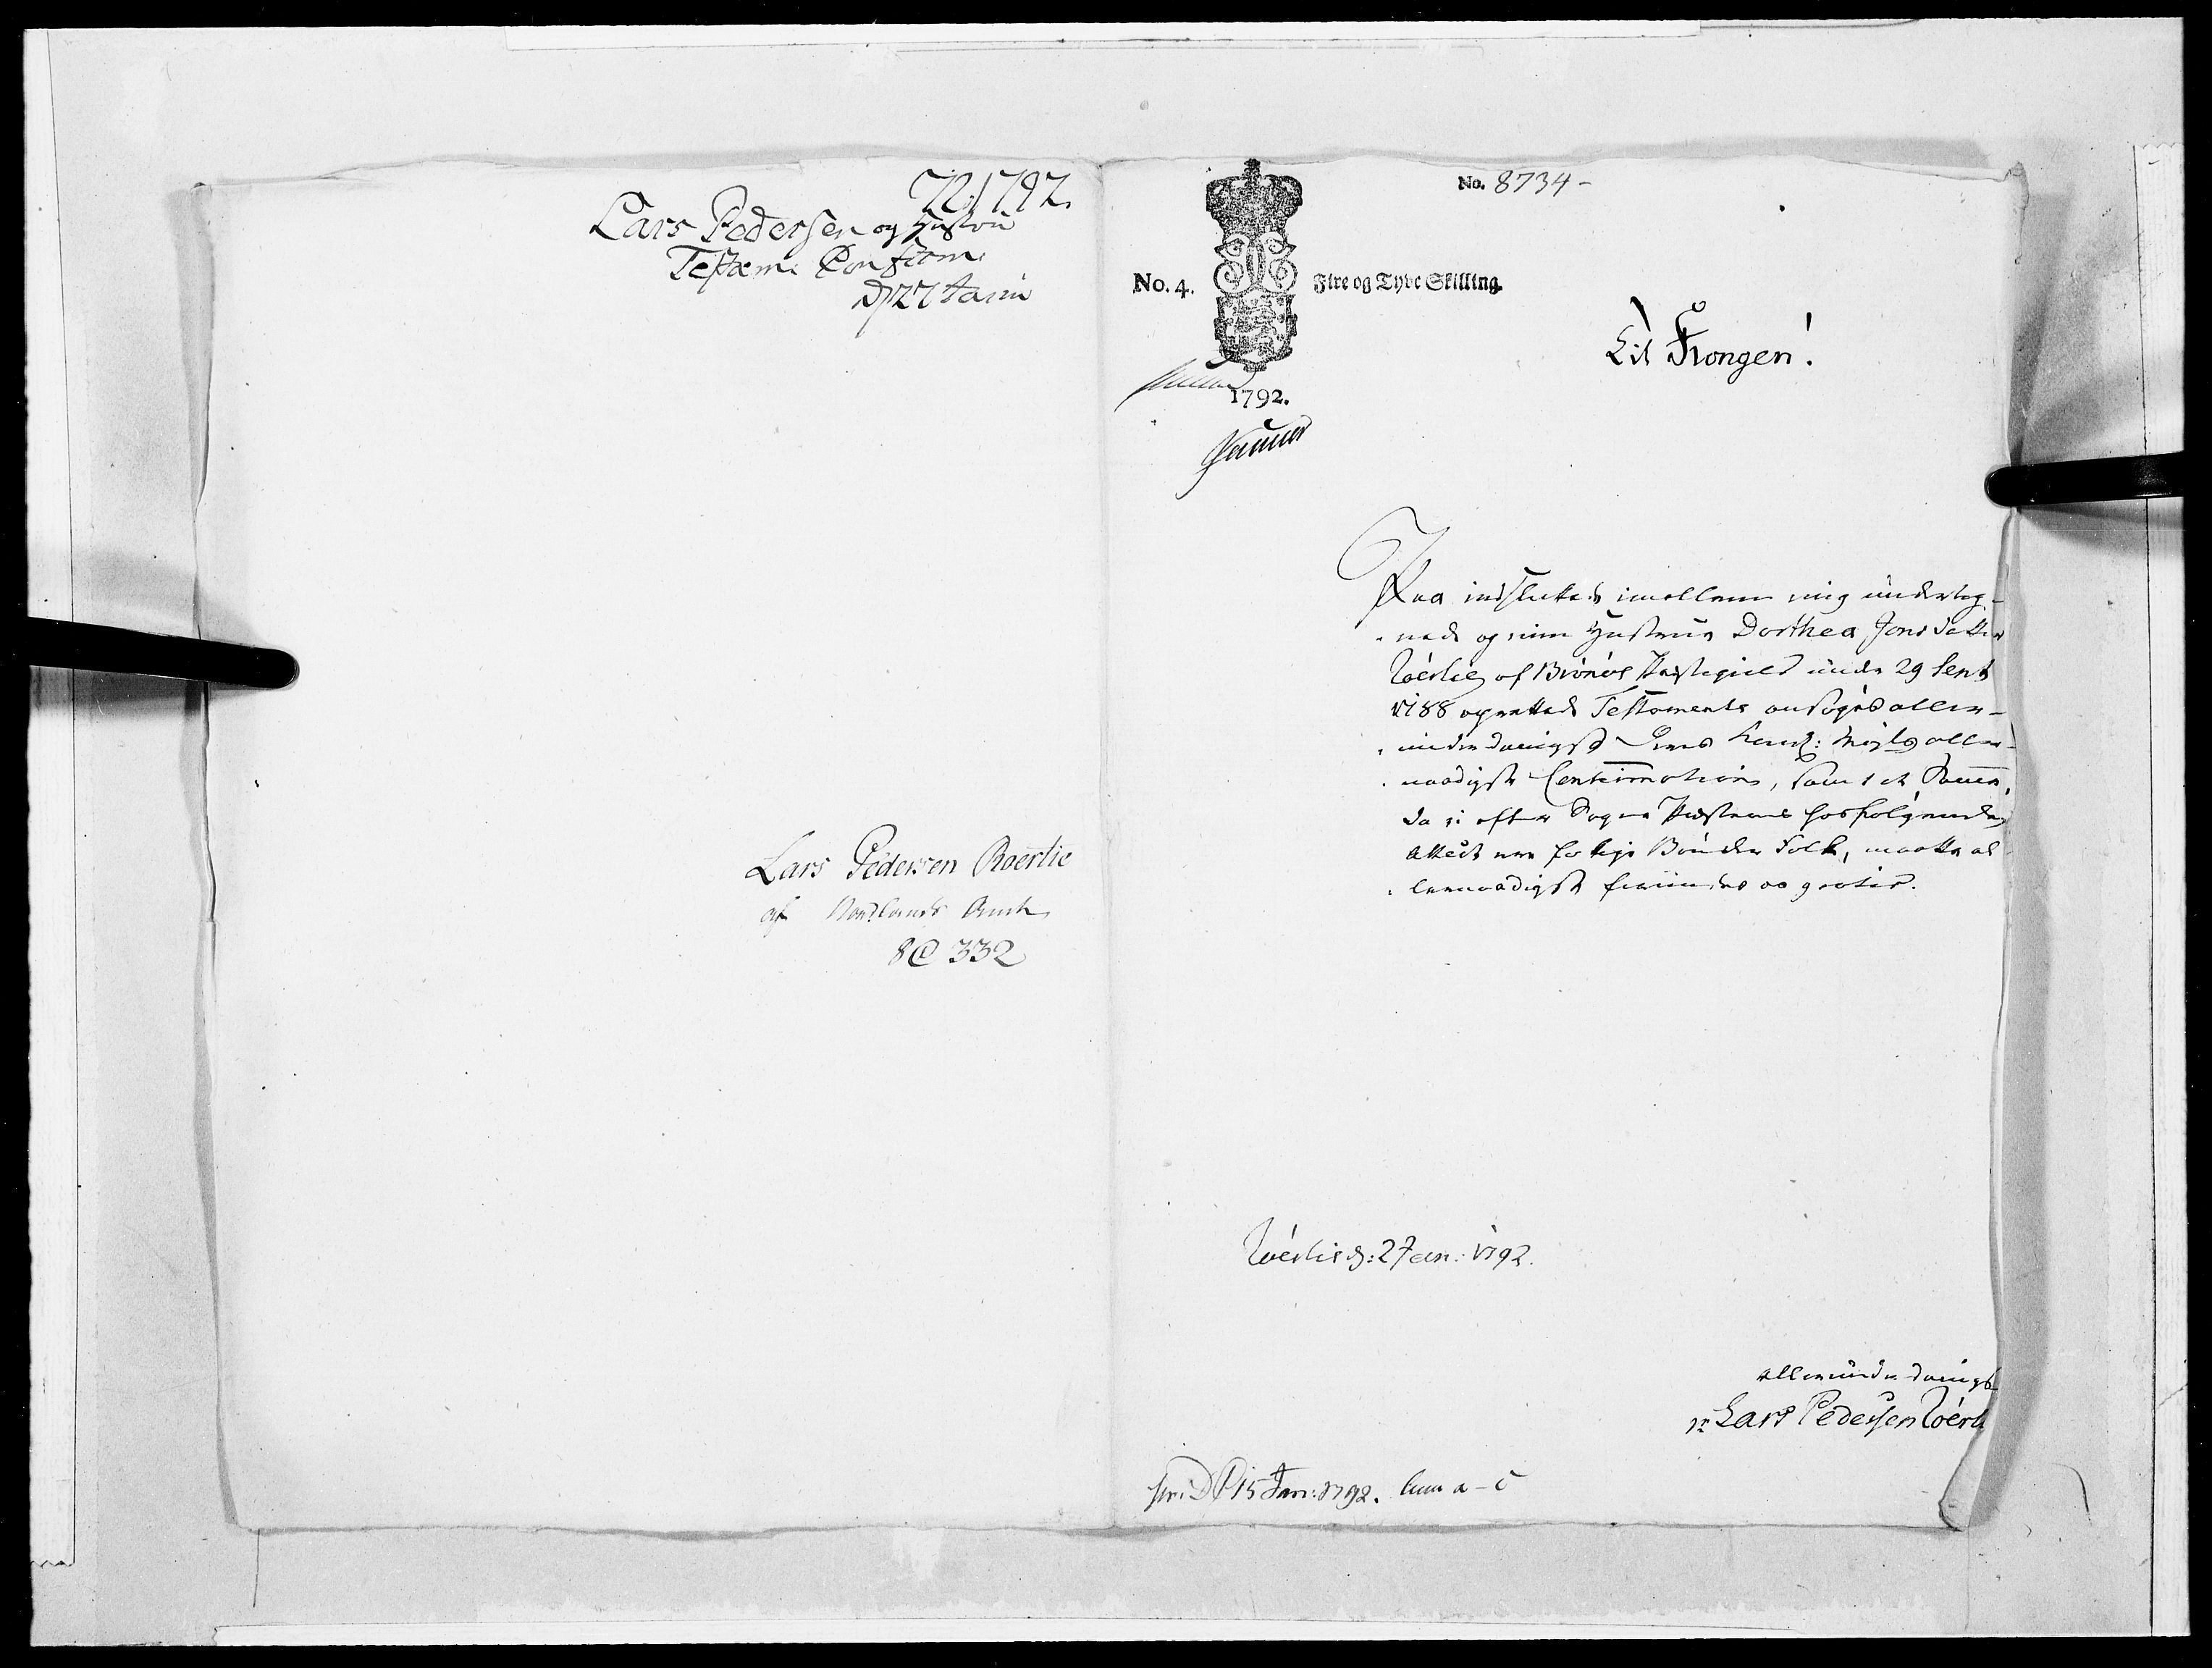 72. 1792.
Lars Pedersen og Hustru
Testam: Confirm:
D 27 Janu
Lars Pedersen Roerlie
af Nordlands Amt
8 @ 332
No. 8734-
No. 4. Fire og Tyve Skilling.
1792.
Til Kongen!
Paa indsluttede imellem mig underteg-
nede og min Hustrue Dorthea Jons Datter
Roérlie af Brönöe Præstegield under 29 Sept
1788 oprettede Testamente ansøges aller-
underdanigst Deres Kongl: Mayts aller-
naadigste Confirmation, som
da vi efter Sogne Præstens hosfølgende
Attest ere fattige Bønder Folk, maatte al-
lernaadigst forundes os gratis.
Roérlie d: 2 Jan: 1792.
allerunderdanigst
Lars Pedersen Roérli
15 Jan: 1792. cum a - c